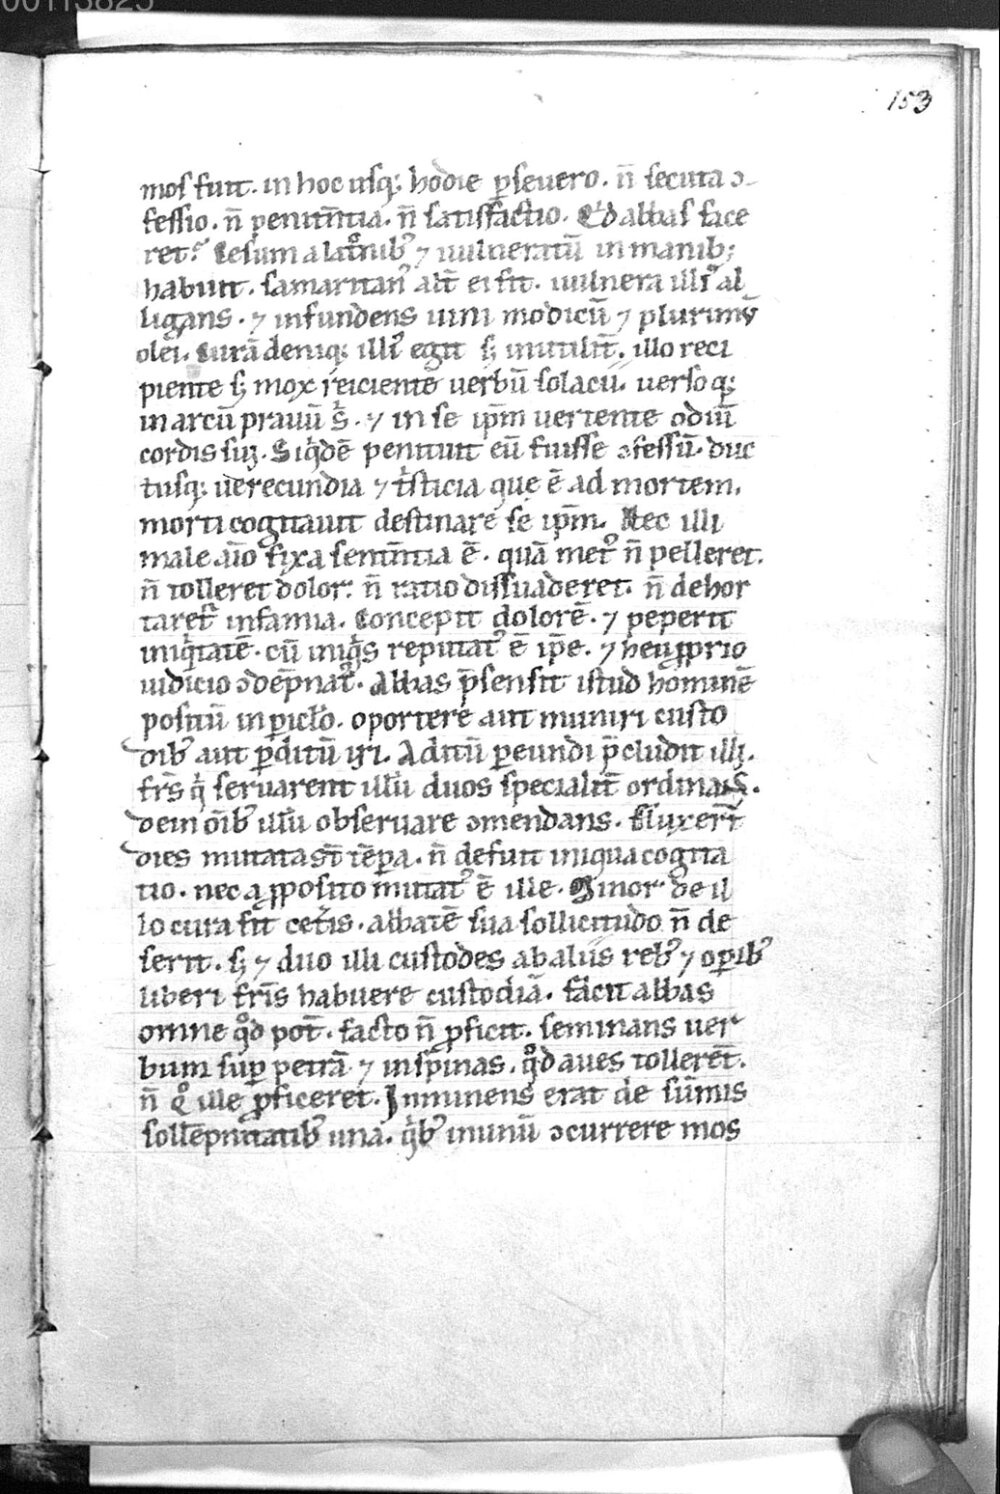 00113825
153
mos fuit. in hoc usq; hodie ꝑseuero. n̄ secuta ɔ-
fessio. n̄ penitn̄tia. n̄ satisfactio. Qͥd abbas face
ret? Lesum a latͦnibꝰ ⁊ uulneratū in manib;
habuit. samaritanꝰ alt̄ ei fit. uulnera illiꝰ al
ligans. ⁊ infundens uini modicū ⁊ plurimū
olei. Curā deniq; illiꝰ egit sꝫ inutilit̄. illo reci
piente sꝫ mox reiciente uerbū solacii. uerso q;
in arcū prauū s̄. ⁊ in se ip̄m uertente odiū
cordis sui. Siqͥdē penituit eū fuisse ɔfessū. duc
tusq; uerecundia ⁊ tͥsticia que ē ad mortem.
morti cogitauit destinare se ip̄m. Nec illi
male aīo fixa sentn̄tia ē. quā metꝰ n̄ pelleret.
n̄ tolleret dolor. n̄ ratio dissuaderet. n̄ dehor
taretᷣ infamia. Concepit dolorē. ⁊ peperit
iniqͥtatē. cū iniqͥs reputatꝰ ē ip̄e. ⁊ heu ꝓprio
iudicio ɔdēpnatᷣ. Abbas p̄sensit istud hominē
positū in ꝑicl̄o. oportere aut muniri custo
dibꝰ aut ꝑditū iri. Aditū ꝑeundi p̄cludit illi.
fr̄s qͥ seruarent illū duos specialit̄ ordinās.
dein oībꝰ illū obseruare ɔmendans. Fluxer̄t
dies mutata st̄ tēꝑa. n̄ defuit iniqua cogita
tio. nec a ꝓposito mutatꝰ ē ille. Minor de il
lo cura fit cet̄is. abbatē sua sollicitudo n̄ de
serit. sꝫ ⁊ duo illi custodes ab aliis rebꝰ ⁊ oꝑibꝰ
liberi fr̄is habuere custodiā. facit abbas
omne qͦd pot̄. facto n̄ ꝓficit. seminans uer
bum suꝑ petrā ⁊ in spinas. qͦd aues tollerēt.
n̄ qͦ ille ꝓficeret. Inminens erat de sūmis
sollēpnitatibꝰ una. qͥbꝰ inunū ɔcurrere mos